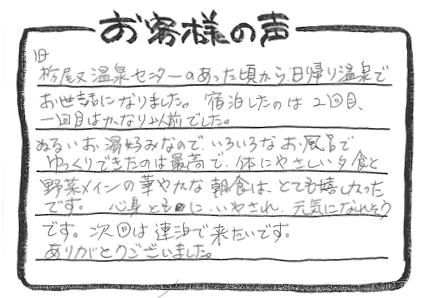 お客様の声
旧
栃尾又温泉センターのあった頃から、日帰り温泉で
お世話になりました。宿泊したのは2回目、
一回目はかなり以前でした。
ぬるいお湯好みなので、いろいろなお風呂で
ゆっくりできたのは最高で、体にやさしい夕食と
野菜メインの華やかな朝食は、とても嬉しかった
です。心身ともに、いやされ、元気になれそう
です。次回は連泊で来たいです。
ありがとうございました。